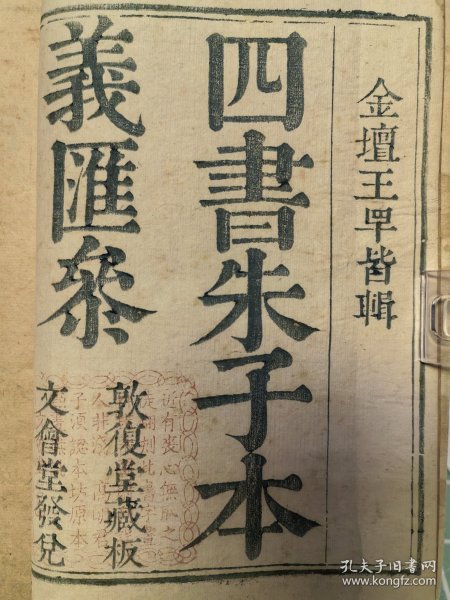 金壇王罕皆輯
四書朱子本
義匯叅
敦復堂藏板
文會堂發兌
孔夫子旧书网
www.kongfz.com